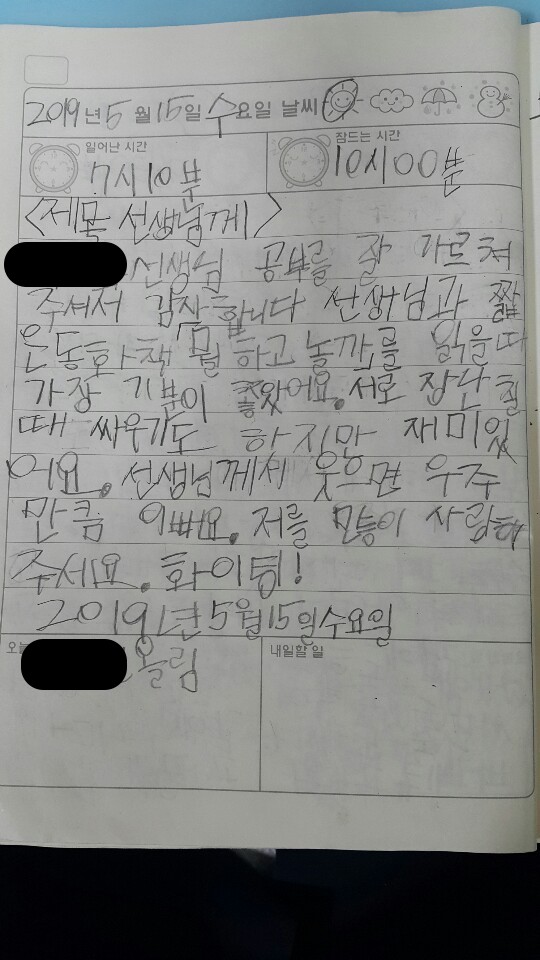 2019년 5월 15일 수요일 날씨
일어난 시간
잠드는 시간
7시10분
10시00분
<제목 선생님께>
선생님 공부를 잘 가르쳐
주셔서 감사합니다 선생님과 짧
은동화책 뭘 하고 놀까를 읽을때
가장 기분이 좋았어요. 서로 장난칠
때 싸우기도 하지만 재미있
어요. 선생님께서 웃으면 우주
만큼 이뻐요. 저를 많이 사랑해
주세요. 화이팅!
2019년 5월 15일 수요일
오늘
내일할 일
올림